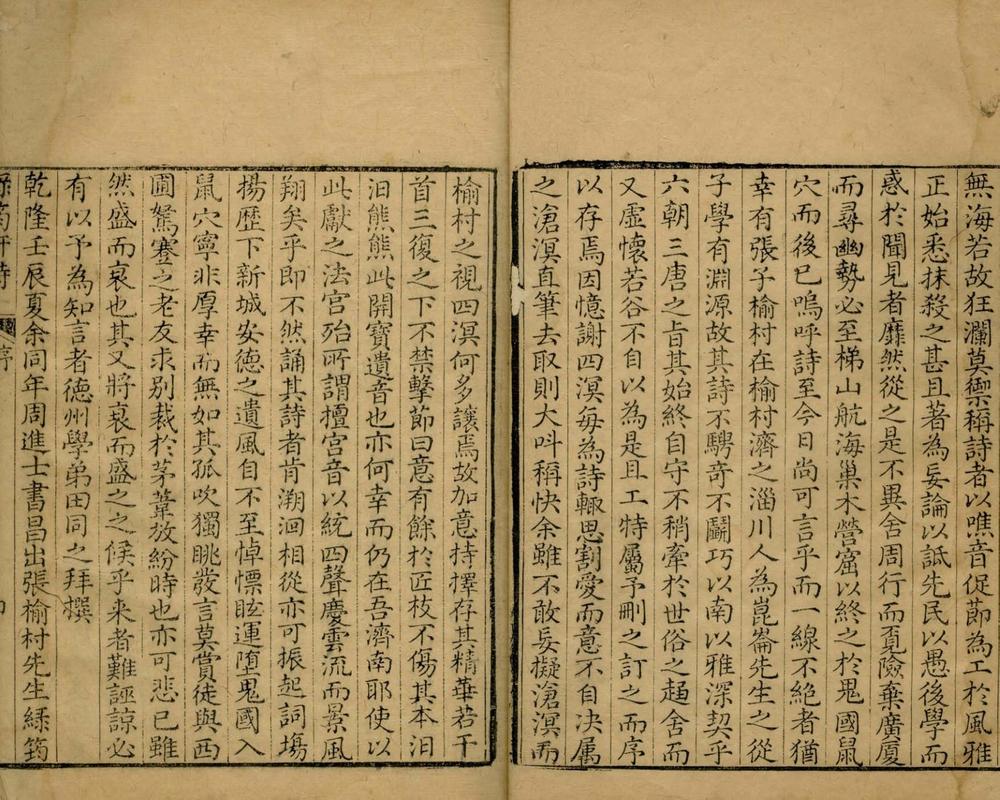 無海若故狂瀾莫禦稱詩者以噍音促節為工於風雅
正始悉抹殺之甚且著為妄論以詆先民以愚後學而
惑於聞見者靡然從之是不異舍周行而覓險棄廣厦
而尋幽勢必至梯山航海巢木營窟以終之於鬼國鼠
穴而後已嗚呼詩至今日尚可言乎而一線不絕者猶
幸有張子榆村在榆村濟之淄川人為崑崙先生之從
子學有淵源故其詩不騁奇不鬬巧以南以雅深契乎
六朝三唐之旨其始終自守不稍牽於世俗之趨舍而
又虛懷若谷不自以為是且工特屬予刪之訂之而序
以存焉因憶謝四溟每為詩輒思割愛而意不自决属
之滄溟直筆去取則大呌稱快余雖不敢妄擬滄溟而
榆村之視四溟何多讓焉故加意持擇存其精華若干
首三復之下不禁擊節曰意有餘於匠枝不傷其本汨
汨熊熊此開寶遺音也亦何幸而仍在吾濟南耶使以
此獻之法宮殆所謂檀宮音以統四聲慶雲流而景風
翔矣乎即不然誦其詩者肯溯洄相從亦可振起詞場
揚歷下新城安德之遺風自不至悼慓眩運墮鬼國入
鼠穴寧非厚幸而無如其孤吹獨眺發言莫賞徒與西
圃駑蹇之老友求別裁於茅葦放紛時也亦可悲已雖
然盛而衰也其又將衰而盛之之候乎来者難誣諒必
有以予為知言者德州學弟田同之拜撰
乾隆壬辰夏余同年周進士書昌出張榆村先生綠筠
綠筠軒詩 序